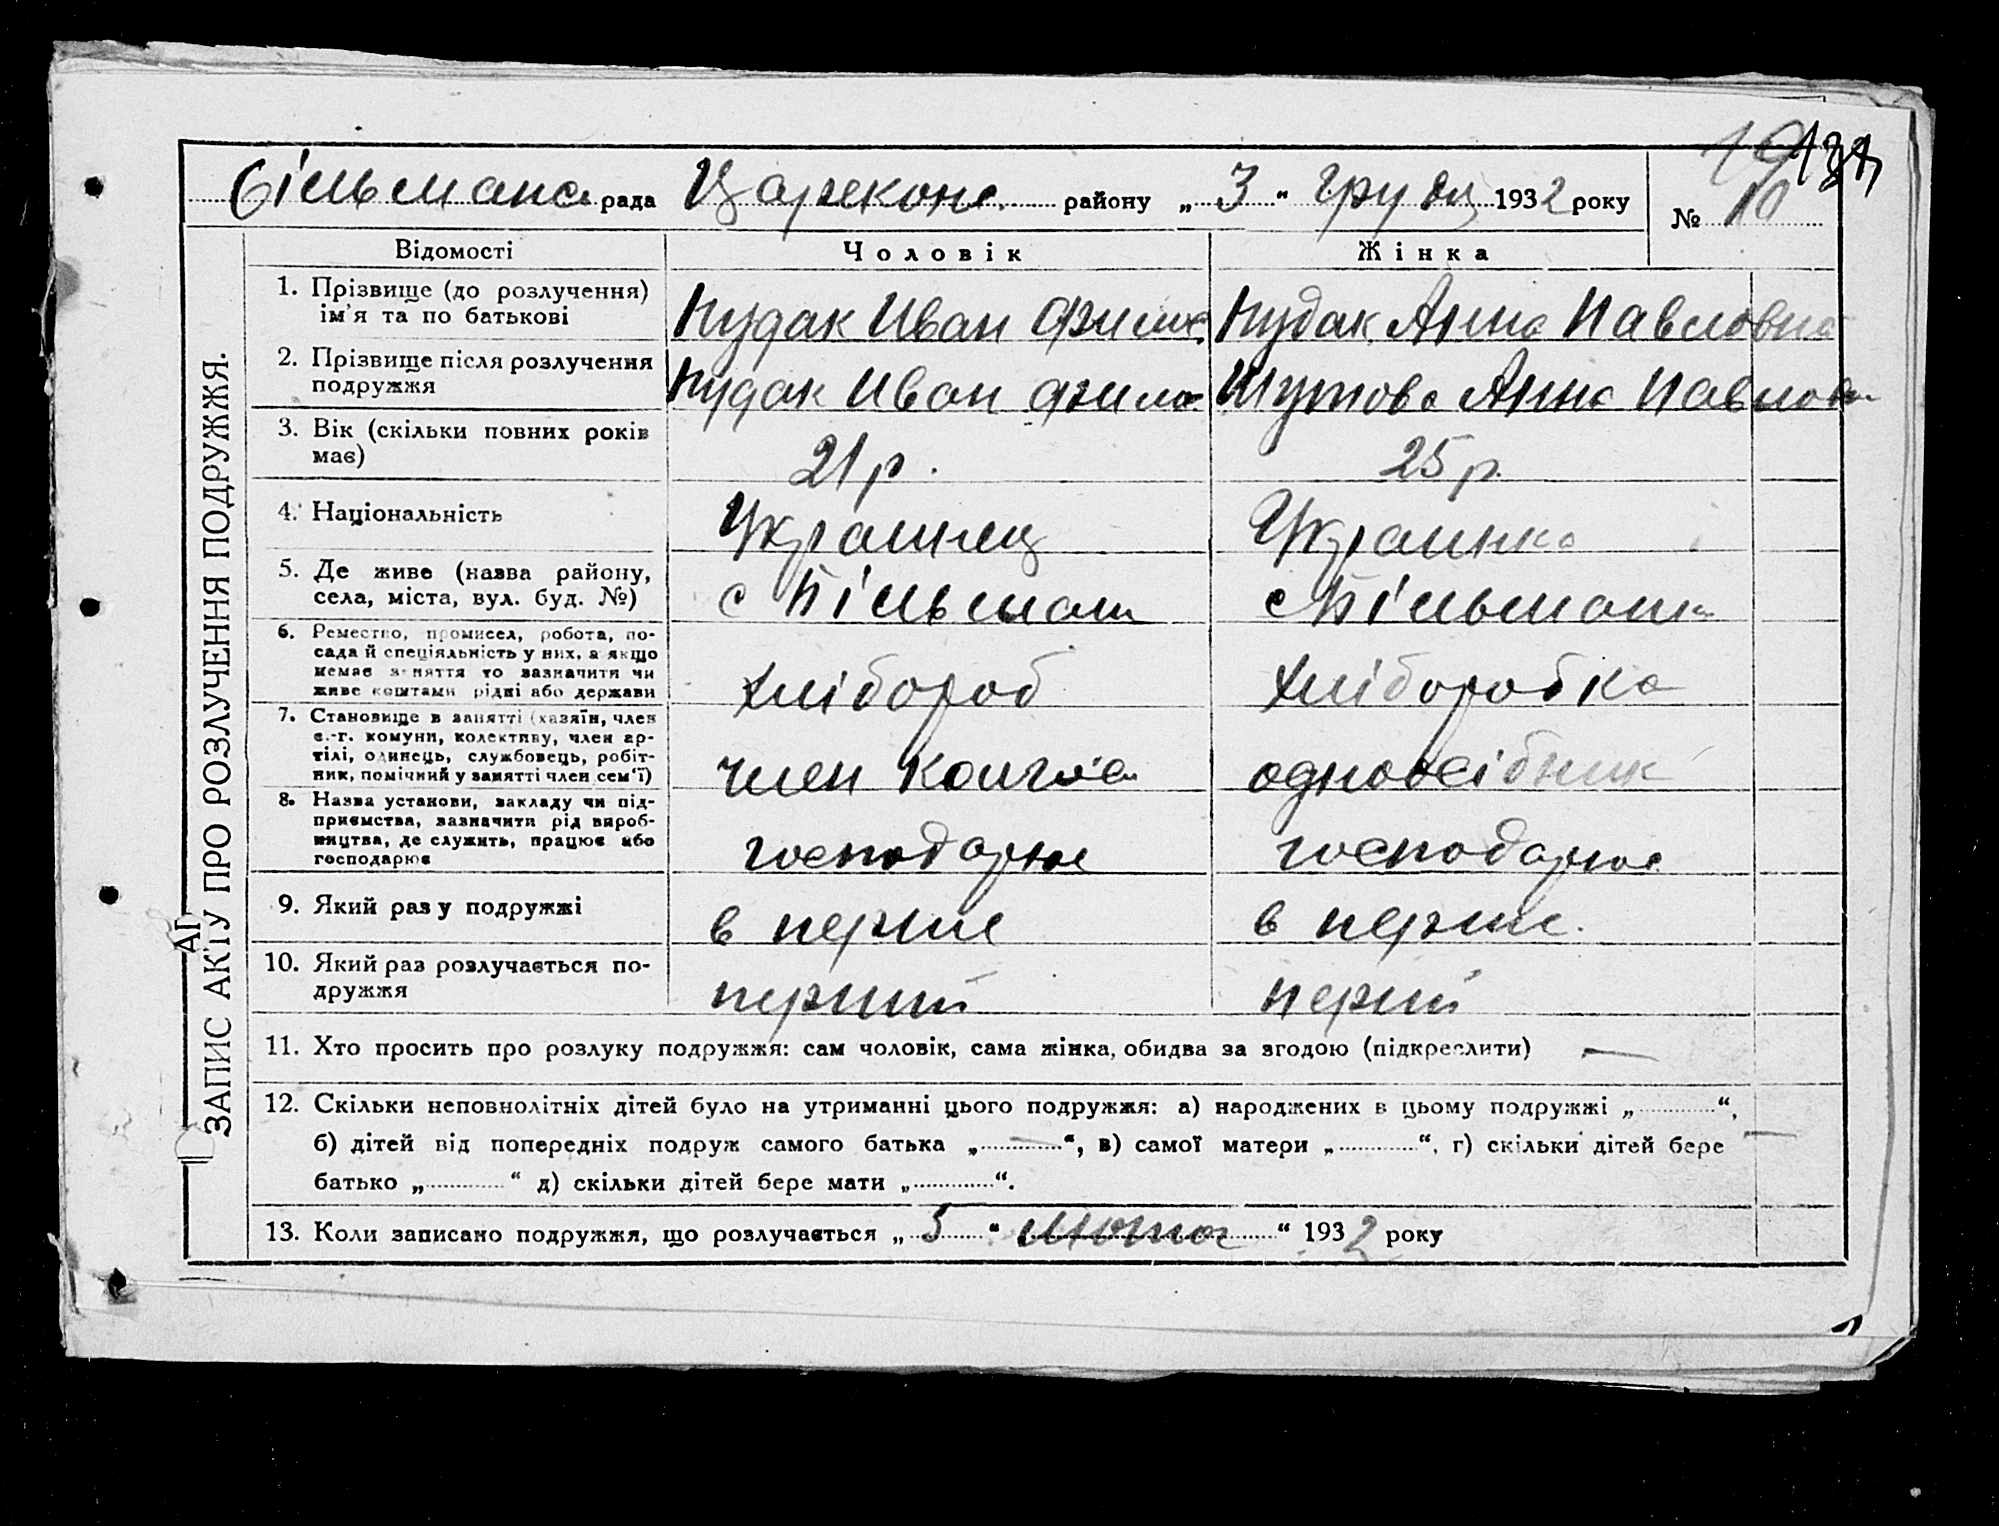 Більманс рада Царекон. району „3“ Грудц 1932 року № 10
Відомості Чоловік Жінка
1. Прізвище (до розлучення) ім'я та по батькові
Кудак Иван Филип. Кудак Анна Павловна
2. Прізвище після розлучення подружжя
Кудак Иван Шутова Анна Павловн
3. Вік (скільки повних років має)
21 р. 25 р.
4. Національність
Украинец Украинка
5. Де живе (назва району, села, міста, вул. буд. №)
с Більман с Більман
6. Ремество, промисел, робота, посада й спеціяльність у них, а якщо немає заняття то зазначити чи живе коштами рідні або держави
хлібороб хліборобка
7. Становище в занятті (хазяїн, член с.-г. комуни, колективу, член артілі, одинець, службовець, робітник, помічний у занятті член сем'ї)
член одноосібник
8. Назва установи, закладу чи підприємства, зазначити рід виробництва, де служить, працює або господарює
господарює господарює
9. Який раз у подружжі
в перше в перше.
10. Який раз розлучається подружжя
перший перший
11. Хто просить про розлуку подружжя: сам чоловік, сама жінка, обидва за згодою (підкреслити) —
12. Скільки неповнолітніх дітей було на утриманні цього подружжя: а) народжених в цьому подружжі „............“,
б) дітей від попередніх подруж самого батька „............“, в) самої матери „............“, г) скільки дітей бере —
батько „............“ д) скільки дітей бере мати „............“.
13. Коли записано подружжя, що розлучається „5“ Лютог“ 1932 року
ЗАПИС АКТУ ПРО РОЗЛУЧЕННЯ ПОДРУЖЖЯ.